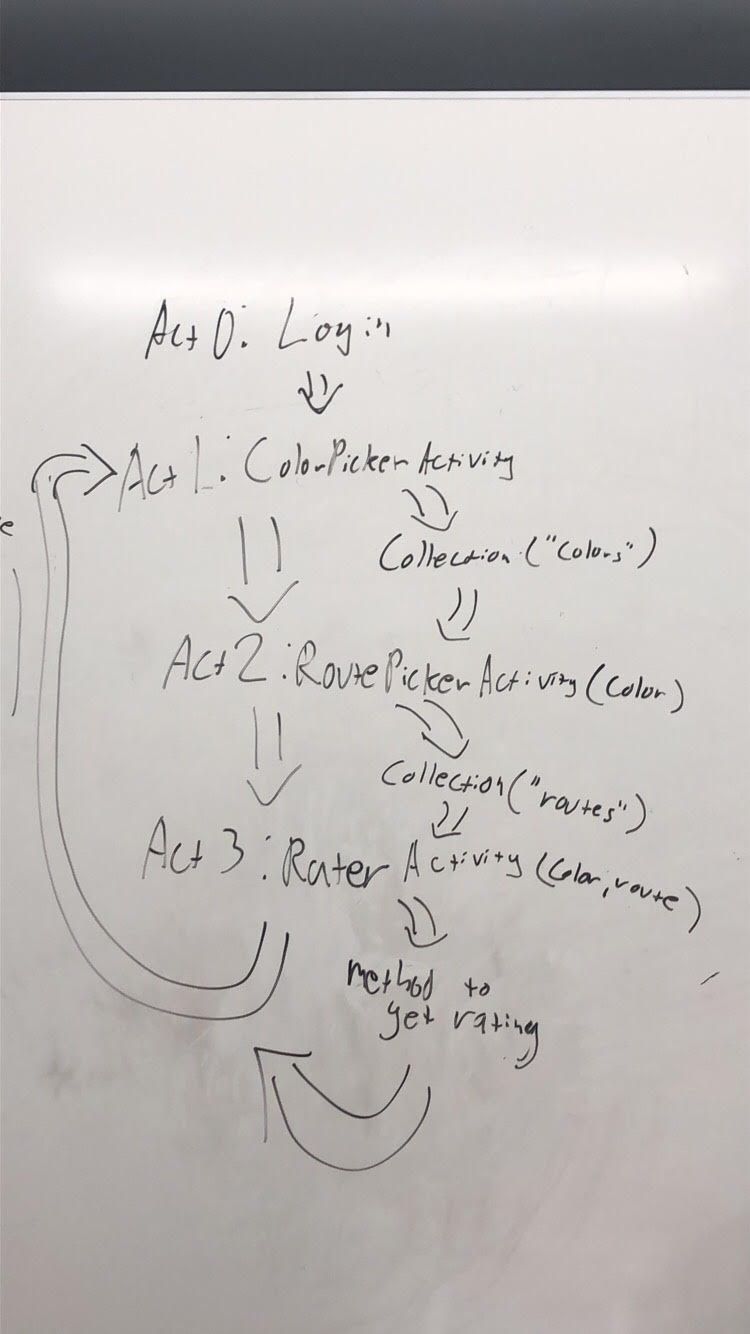 Act 0: Login
Act 1: ColorPicker Activity
Collection("Colors")
Act 2: RoutePicker Activity (Color)
Collection("routes")
Act 3: Rater Activity (Color, route)
method to
get rating